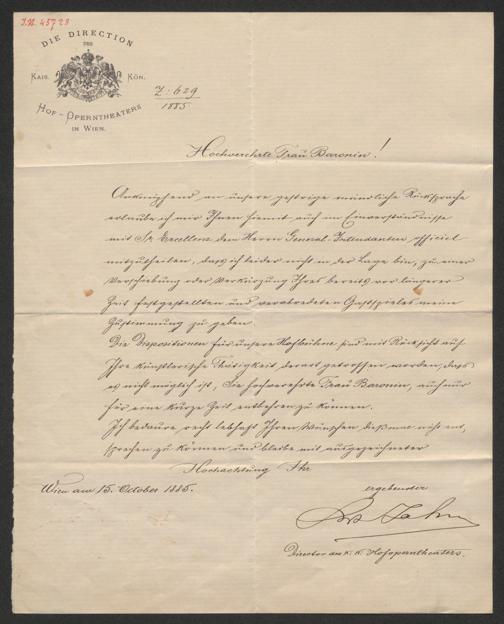 I.N. 45723
DIE DIRECTION
DES
KAIS. KÖN.
HOF-OPERNTHEATERS
IN WIEN.
Z: 629
1885
Hochverehrte Frau Baronin!
Anknüpfend an unsere gestrige mündliche Rücksprache
erlaube ich mir Ihnen hiemit auch im Einverständnisse
mit Sr. Excellenz dem Herrn General-Intendanten officiel
mitzutheilen, dass ich leider nicht in der Lage bin, zu einer
Verschiebung oder Verkürzung Ihres bereits vor längerer
Zeit festgestellten und verabredeten Gastspieles meine
Zustimmung zu geben.
Die Dispositionen für unsere Hofbühne sind mit Rücksicht auf
Ihre künstlerische Thätigkeit derart getroffen worden, dass
es nicht möglich ist, Sie hochverehrte Frau Baronin, auch nur
für eine kurze Zeit entbehren zu können.
Ich bedaure recht lebhaft Ihren Wünschen diesmal nicht ent-
sprechen zu können und bleibe mit ausgezeichneter
Hochachtung Ihr
Wien am 15. October 1885.
ergebenster
Jahn
Director des k. k. Hofoperntheaters.